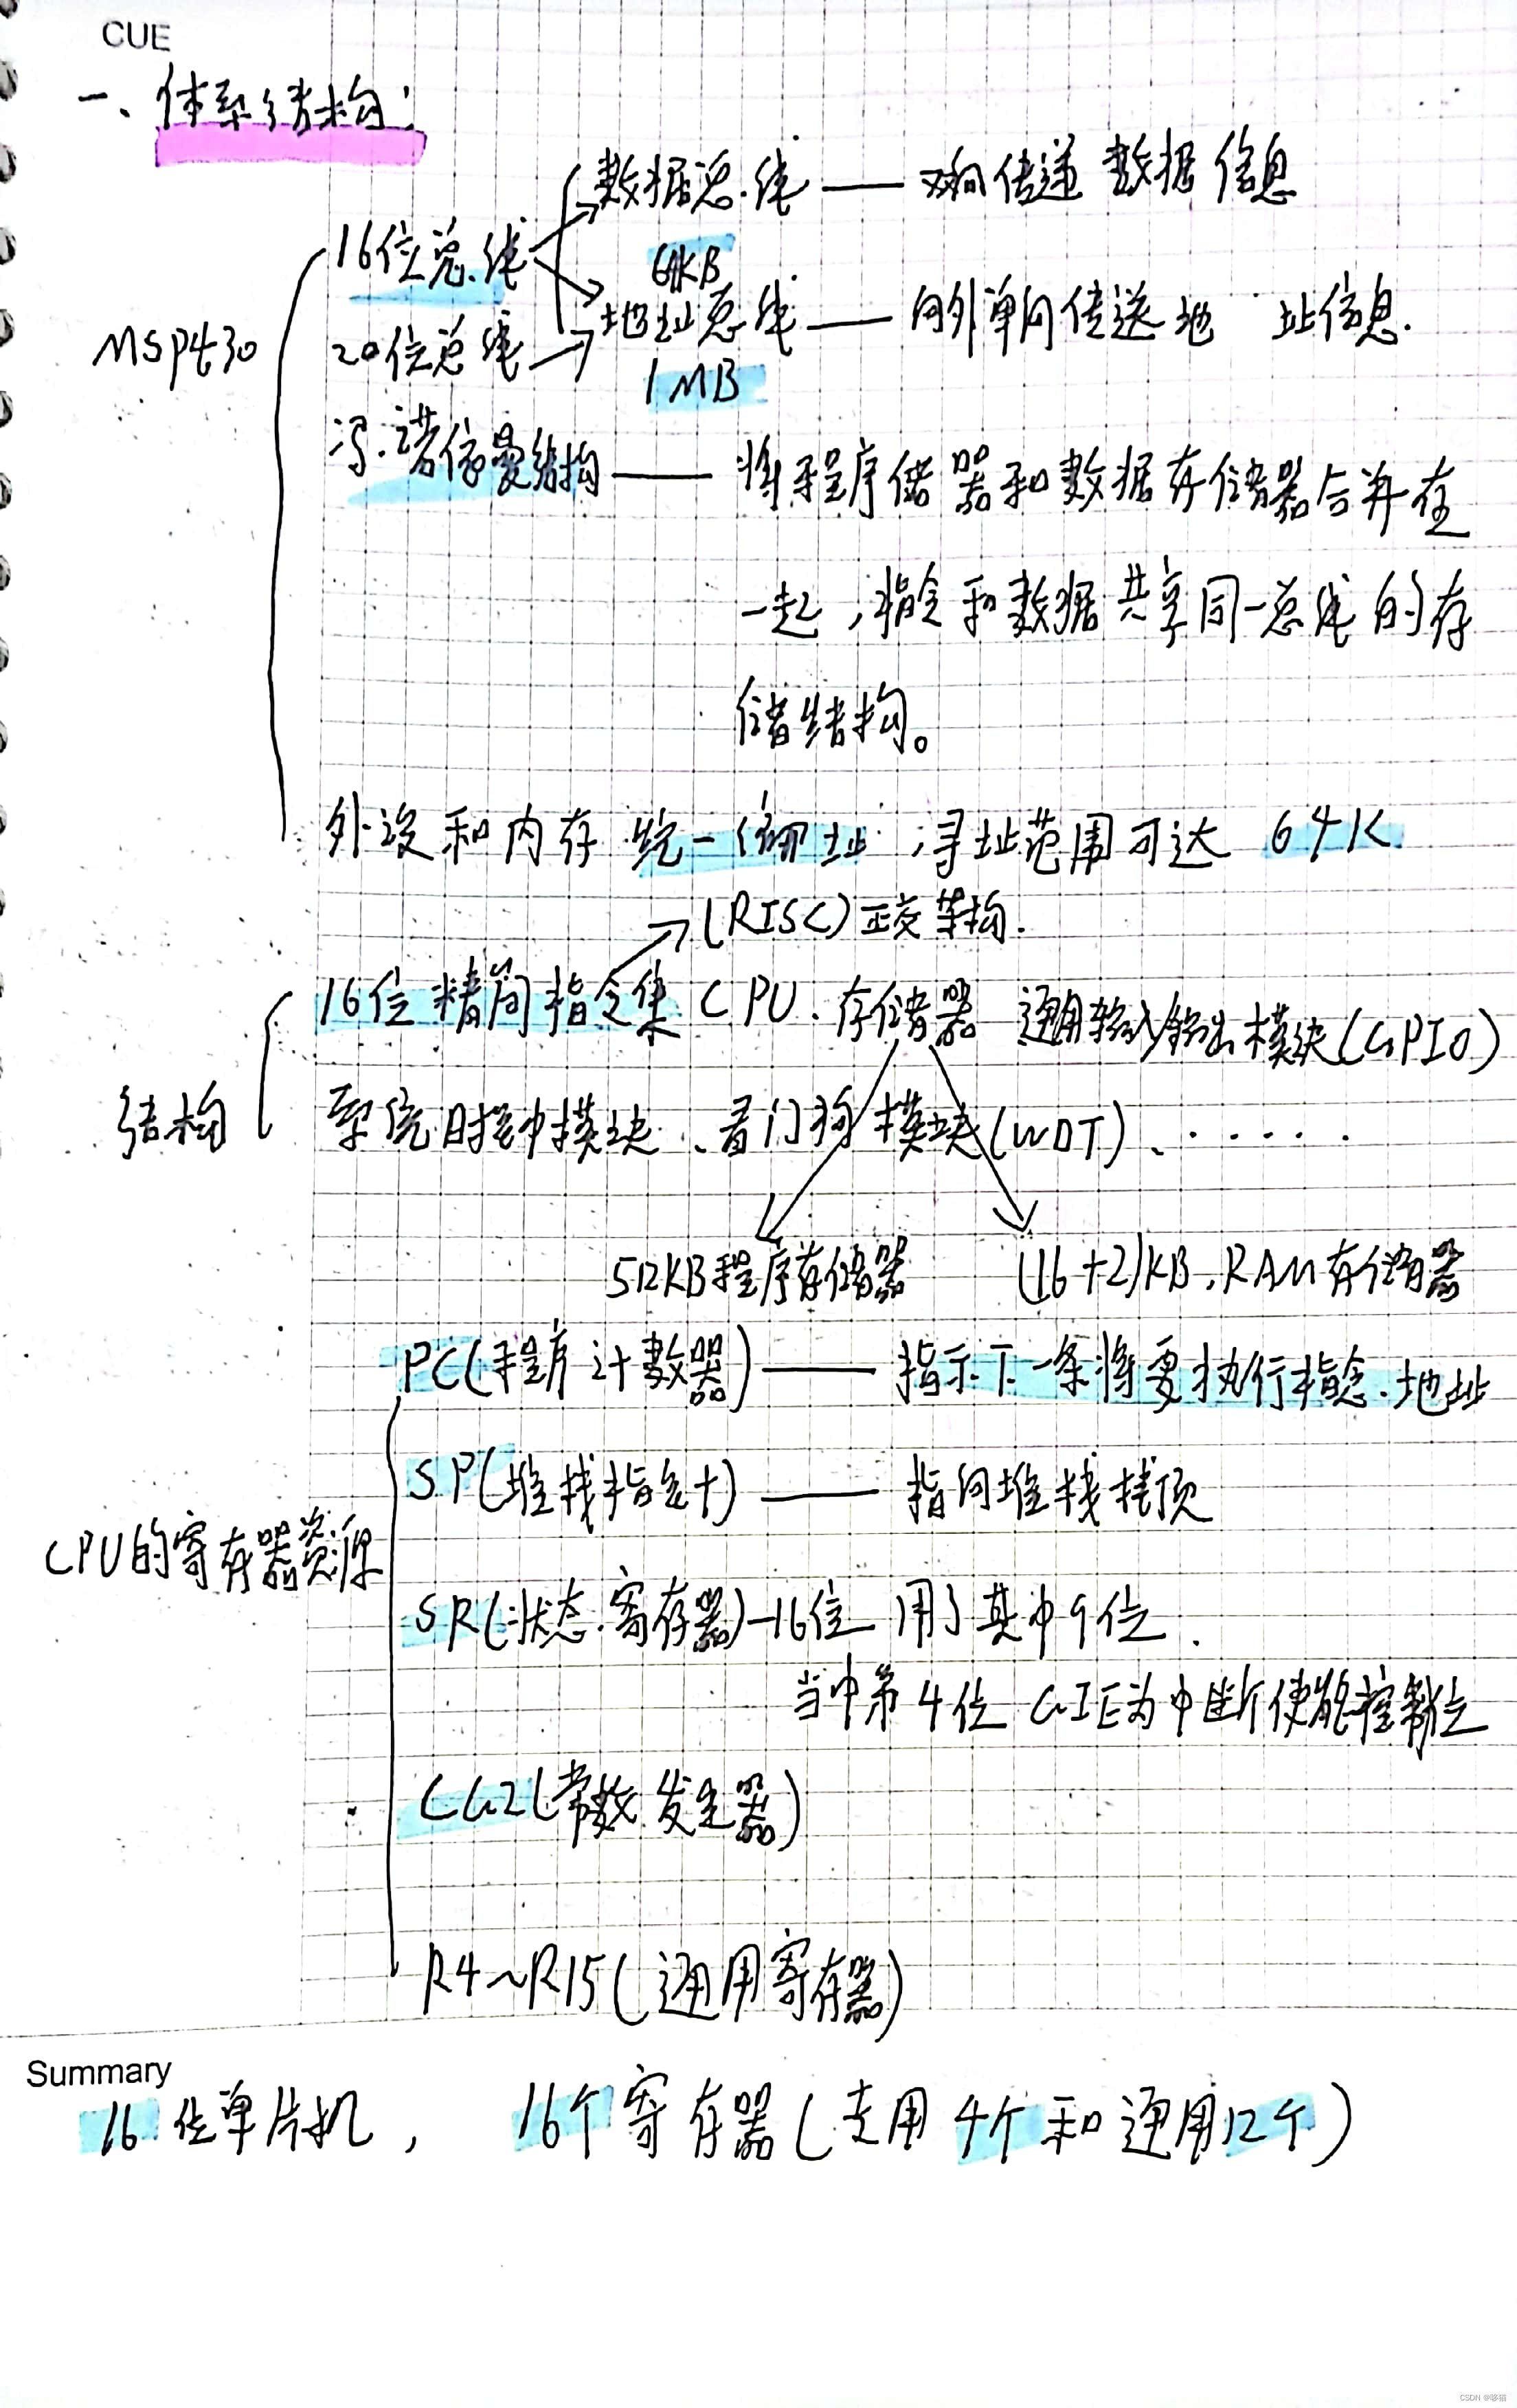 CUE
一、体系结构:
数据总线 —— 双向传递数据信息
16位总线
64KB
地址总线 —— 向外单向传送地址信息.
MSP430
20位总线
1MB
冯·诺依曼结构 —— 将程序储器和数据存储器合并在
一起,指令和数据共享同一总线的存
储结构。
外设和内存统一编址,寻址范围可达 64K.
(RISC)正交结构.
16位精简指令集CPU、存储器 通用输入输出模块(GPIO)
结构
系统时钟模块、看门狗模块(WDT)、······
512KB程序存储器 (16+2)KB.RAM存储器
PC(程序计数器) —— 指示下一条将要执行指令.地址
SP(堆栈指针) —— 指向堆栈栈顶
CPU的寄存器资源
SR(状态寄存器)—16位 用了其中9位.
当中第4位 GIE为中断使能控制位
CG2(常数发生器)
R4~R15(通用寄存器)
Summary
16位单片机, 16个寄存器(专用4个和通用12个)
CSDN @哆猫